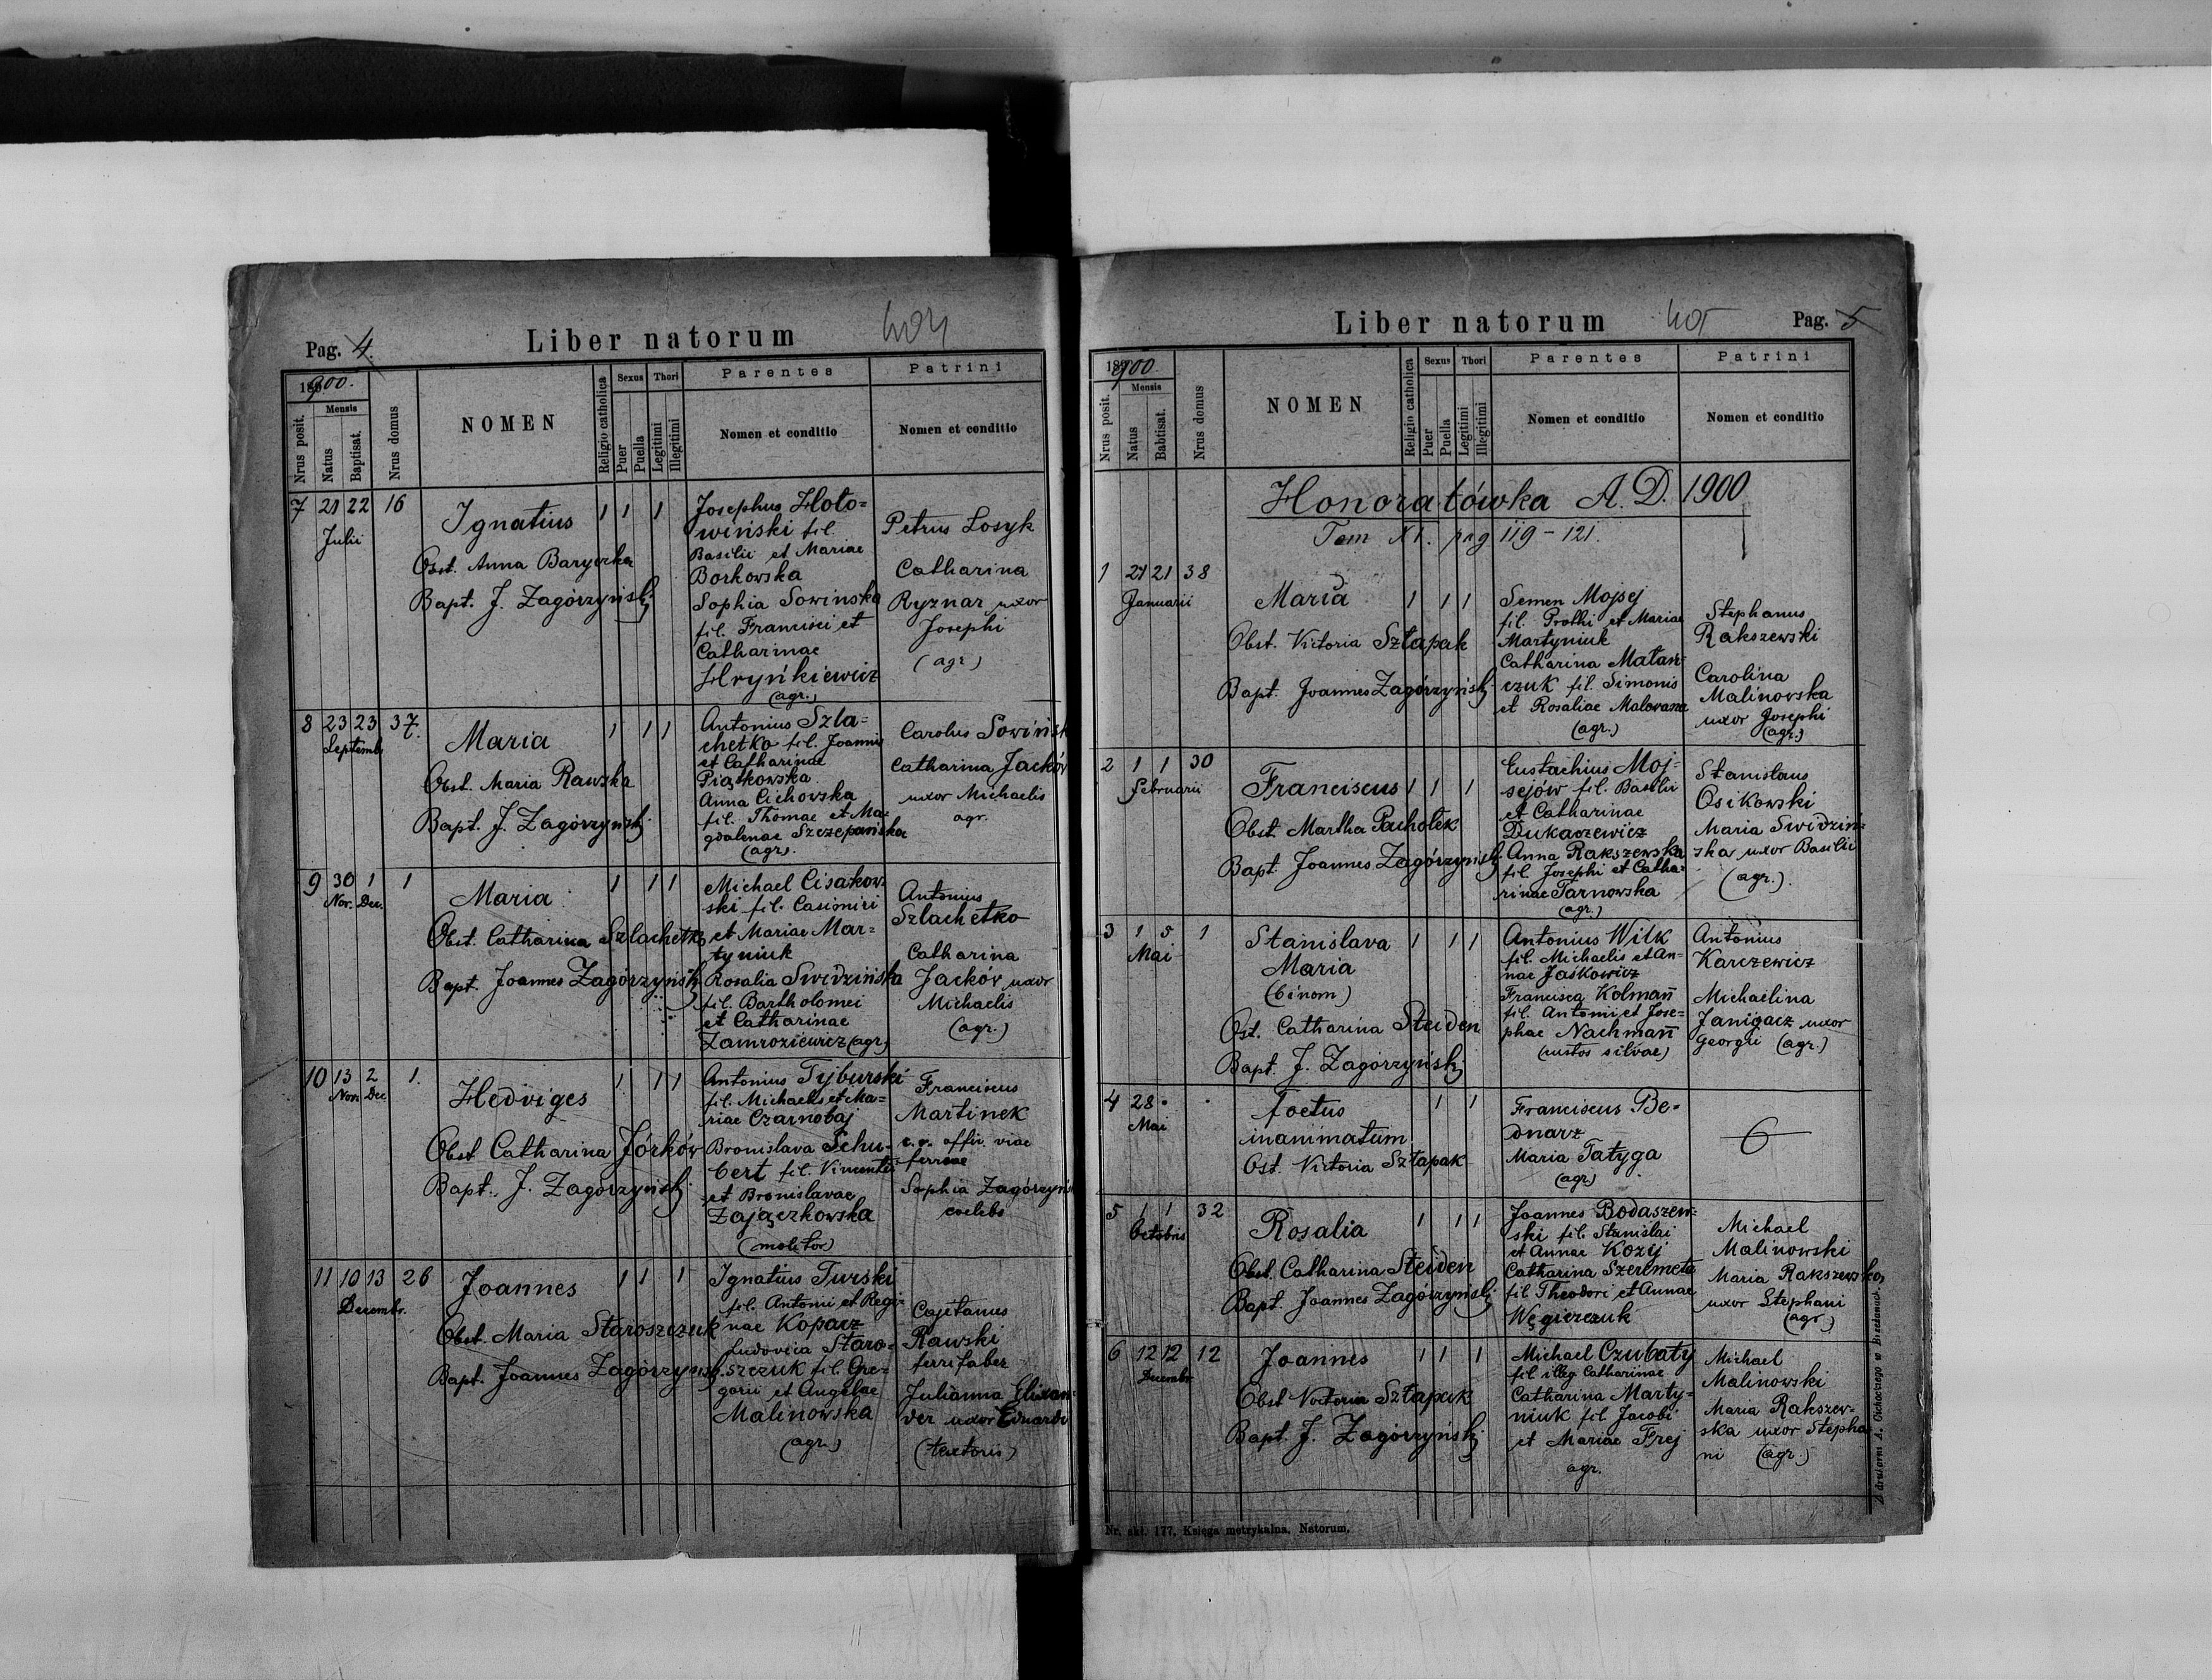 Pag. 4.
Liber natorum
404
1900.
Nrus posit.
Mensis
Natus
Baptisat.
Nrus domus
NOMEN
Religio catholica
Sexus
Puer
Puella
Thori
Legitimi
Illegitimi
Parentes
Nomen et conditio
Patrini
Nomen et conditio
7 21 22 16
Julii
Ignatius
Obst. Anna Baryerka
Bapt. J. Zagórzyński
1 1 1
Josephus Hoło=
wiński fil.
Basilii et Mariae
Borkowska
Sophia Sowinska
fil. Francisci et
Catharinae
Hryńkiewicz
(agr.)
Petrus Losyk
Catharina
Ryznar uxor
Josephi
(agr)
8 23 23 37.
Septemb.
Maria
Obst. Maria Rawska
Bapt. J. Zagórzyński
1 1 1
Antonius Szla=
chetko fil. Joannis
et Catharinae
Piątkowska
Anna Cichovska
fil. Thomae et Ma=
gdalenae Szczepańska
(agr).
Carolus Sowińsk
Catharina Jacków
uxor Michaelis
agr.
9 30 1 1
Nov. Dec.
Maria
Obst. Catharina Szlachetko
Bapt. Joannes Zagórzyński
1 1 1
Michael Cisakow=
ski fil. Casimiri
et Mariae Mar=
tyniuk
Rosalia Swidzińska
fil. Bartholomei
et Catharinae
Zamroziewicz (agr)
Antonius
Szlachetko
Catharina
Jacków uxor
Michaelis
(agr.)
10 13 2 1.
Nov. Dec.
Hedviges
Obst. Catharina Jórków
Bapt. J. Zagórzyński
1 1 1
Antonius Tyburski
fil. Michaelis et Ma=
riae Czarnobaj
Bronislava Schu=
bert fil. Vincentii
et Bronislavae
Zajączkowska
(molitor)
Franciscus
Martinek
c. r. offic. viae
ferreae
Sophia Zagórzyńs
coelebs
11 10 13 26
Decembr.
Joannes
Obst. Maria Staroszczuk
Bapt. Joannes Zagórzyński
1 1 1
Ignatius Turski
fil. Antoni et Regi=
nae Kopacz
Ludovica Staro=
szczuk fil Gre=
gorii et Angelae
Malinowska
(agr.)
Cajetanus
Rawski
ferrifaber
Julianna Glixan=
der uxor Eduardi
(textoris)
Liber natorum
405
Pag. 5
1900
Nrus posit.
Mensis
Natus
Babtisat.
Nrus domus
NOMEN
Religio catholica
Sexus
Puer
Puella
Thori
Legitimi
Illegitimi
Parentes
Nomen et conditio
Patrini
Nomen et conditio
Honoratówka A. D. 1900
Tom XI. pag 119 - 121.
1 21 21 38
Januarii
Maria
Obst. Victoria Sztapak
Bapt. Joannes Zagórzyński
1 1 1
Semen Mojsej
fil. Prothi et Mariae
Martyniuk
Catharina Matań=
czuk fil. Simonis
et Rosaliae Malovana
(agr.)
Stephanus
Rakszewski
Carolina
Malinovska
uxor Josephi
(agr.)
2 1 1 30
Februarii
Franciscus
Obst. Martha Pachołek
Bapt. Joannes Zagórzyński
1 1 1
Eustachius Moj=
sejów fil. Basilii
et Catharinae
Dukaczewicz
Anna Rakszewska
fil. Josephi et Catha=
rinae Tarnowska
(agr.)
Stanislaus
Osikowski
Maria Swidziń=
ska uxor Basilii
(agr.)
3 1 5 1
Mai
Stanislava
Maria
(binom)
Ost. Catharina Steiden
Bapt. J. Zagórzyński
1 1 1
Antonius Wilk
fil. Michaelis et An=
nae Jaśkowicz
Francisca Kolmañ
fil. Antoni et Jose=
phae Nachmañ
(custos silvae)
Antonius
Karczewicz
Michaelina
Janigacz uxor
Georgii (agr.)
4 28
Mai
Foetus
inanimatum
Ost. Victoria Sztapak
1 1
Franciscus Be=
dnarz
Maria Tatyga
(agr)
5 1 1 32
Octobris
Rosalia
Obst. Catharina Steiden
Bapt. Joannes Zagórzyński
1 1 1
Joannes Bodaszew=
ski fil. Stanislai
et Annae Kozij
Catharina Szeremeta
fil Theodori et Annae
Węgierczuk
Michael
Malinowski
Maria Rakszewska
uxor Stephani
(agr)
6 12 12 12
Decembr.
Joannes
Obst Victoria Sztapak
Bapt. J. Zagórzyński
1 1 1
Michael Czubaty
fil illeg Catharinae
Catharina Marty=
niuk fil Jacobi
et Mariae Frej
agr.
Michael
Malinowski
Maria Rakszew=
ska uxor Stepha
ni (agr)
Nr. skł. 177. Księga metrykalna. Natorum.
Z drukarni A. Cichockiego w Brzeżanach.